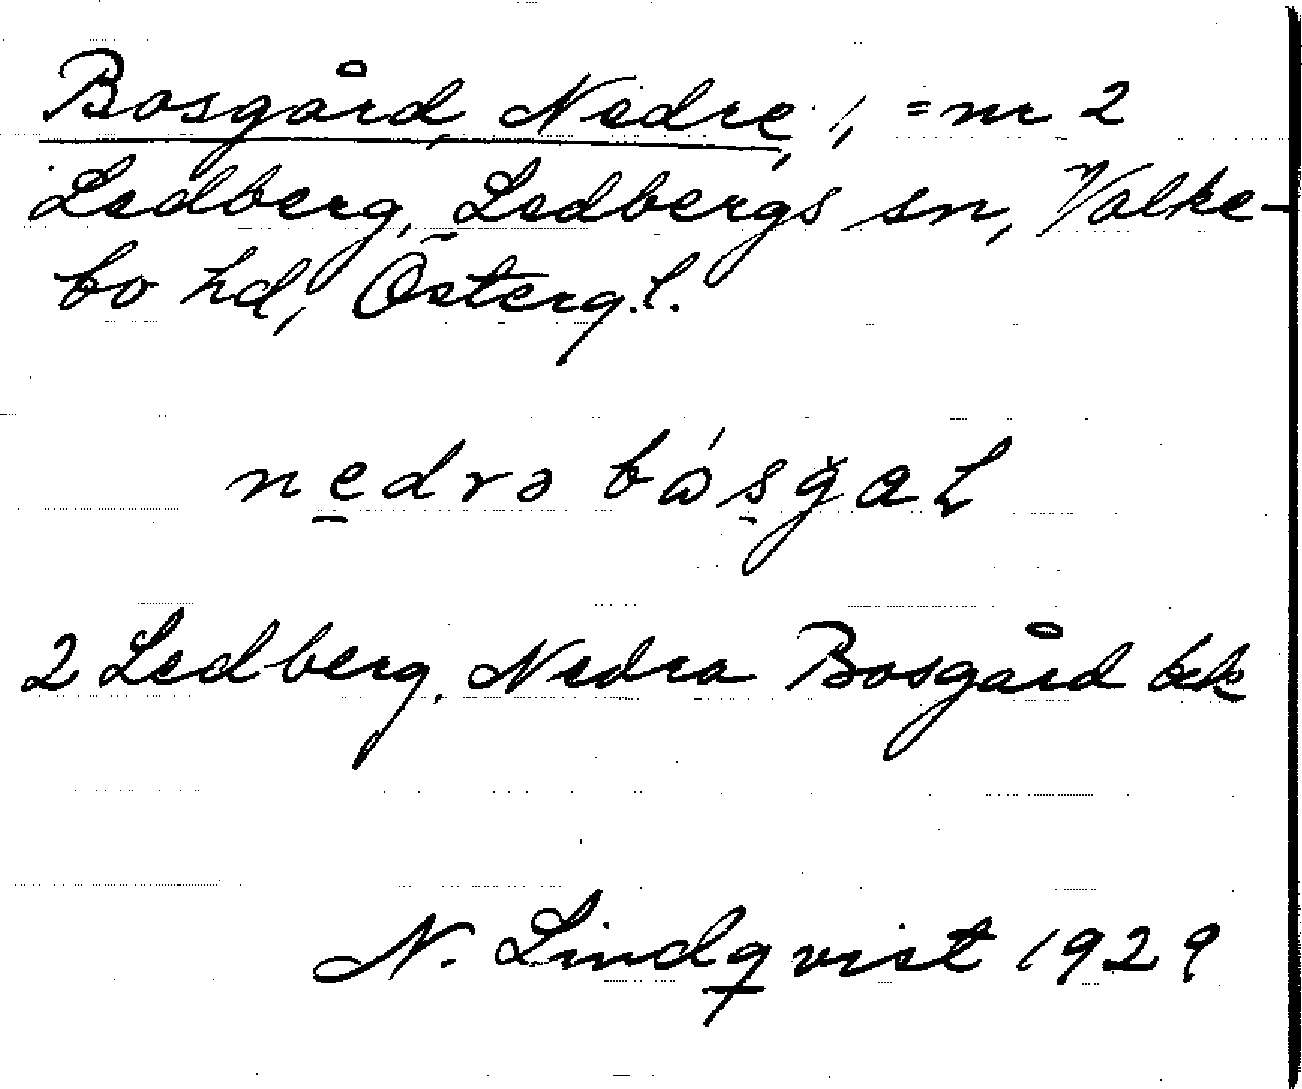 Bosgård, Nedre, !, = nr 2
Ledberg, Ledbergs sn, Valke-
bo hd, Österg.l.
nedrə bósgaɫ
2 Ledberg, Nedra Bosgård bek
N. Lindqvist 1929